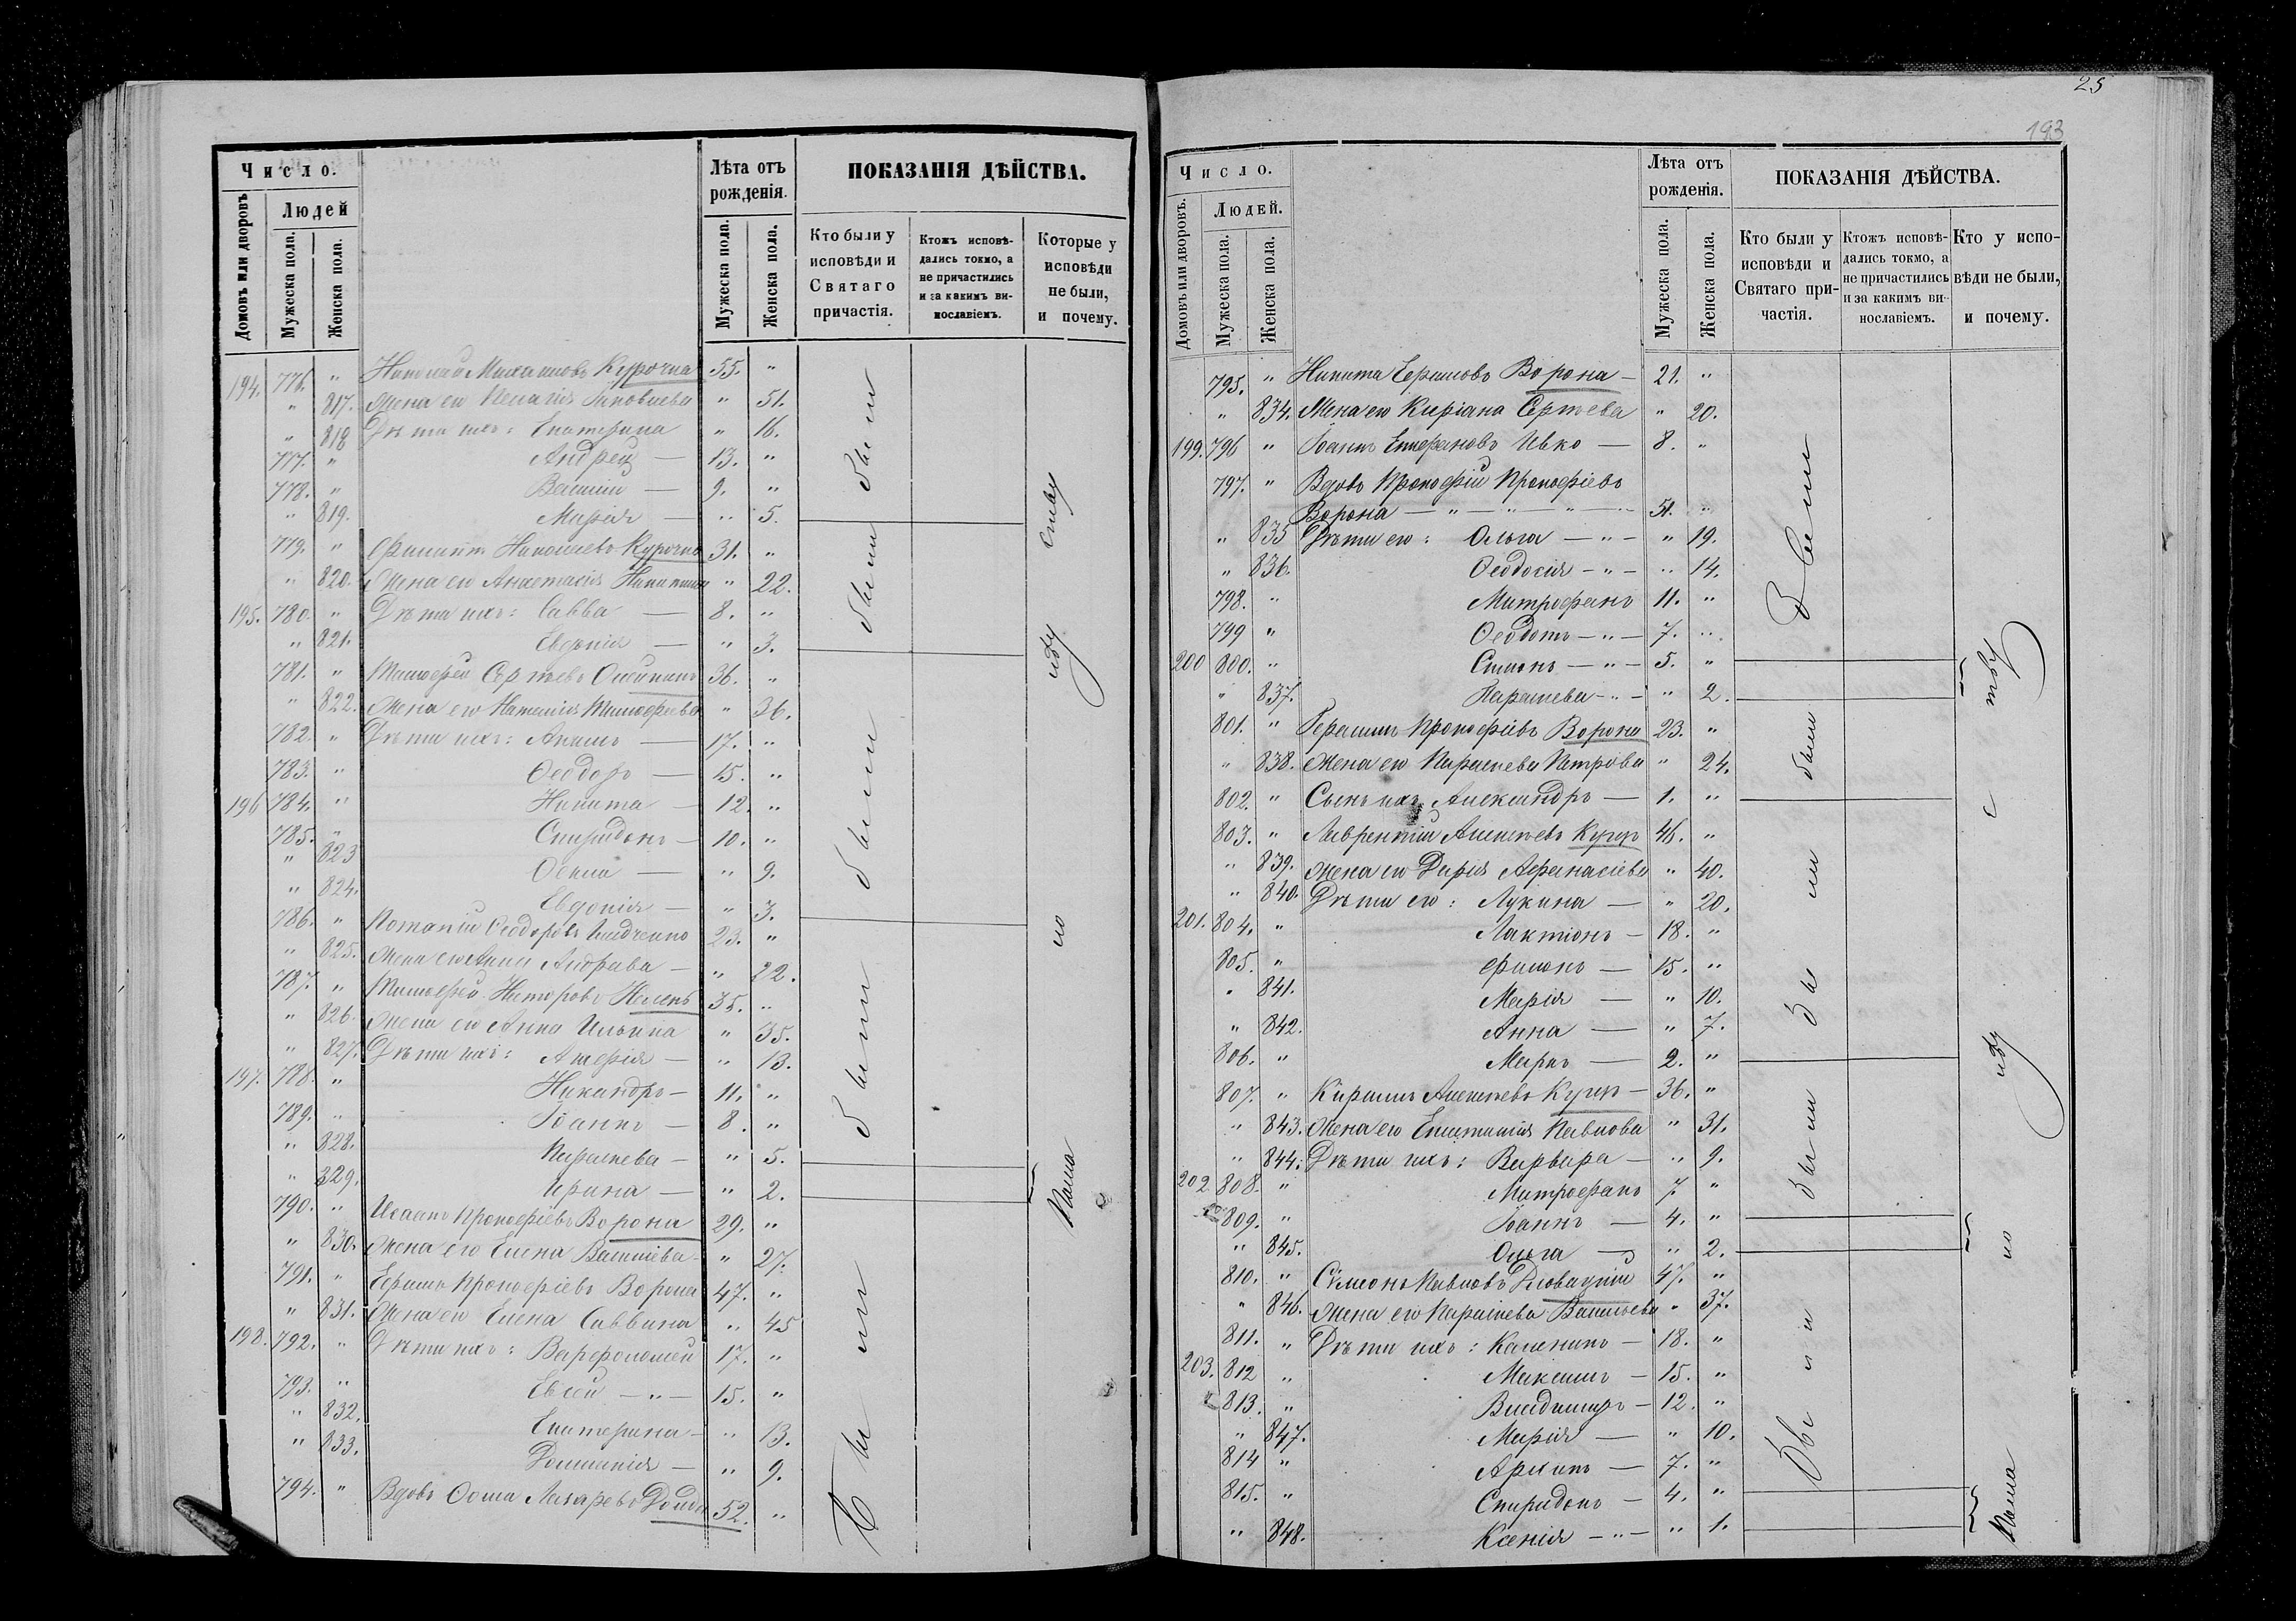 Число.
Домовъ или дворовъ
Людей
Мужеска пола.
Женска пола.
Лѣта отъ рожденія.
Мужеска пола.
Женска пола.
ПОКАЗАНІЯ ДѢЙСТВА.
Кто были у исповѣди и Святаго причастія.
Ктожъ исповѣ-дались токмо, а не причастились и за какимъ ви-нословіемъ.
Которые у исповѣди не были, и почему.
194. 776. " Николай Михаиловъ Курочка 55. "
" 817. Жена его " 51.
" 818 Дѣти ихъ: Екатерина " 16.
777. " Андрей — 13. "
778. " Василій — 9. "
" 819. Марія — " 5.
779. " Филиппъ Николаевъ Курочка 31. "
" 820. Жена его Анастасія " 22.
195. 780. " Дѣти ихъ: Савва — 8. "
" 821. Евдокія — " 3.
781. " Тимофей Сергѣевъ 36. "
" 822. Жена его Наталія Тимофеева " 36.
782. " Дѣти ихъ: — 17. "
783. " Феодоръ — 15. "
196 784. " Никита — 12. "
785. " Спиридонъ — 10. "
" 823 — " 9.
" 824. Евдокія — " 3.
786. " Потапій Феодоровъ 23. "
" 825. Жена его Анна Андреева — " 22.
787. " Тимофей 35. "
" 826. Жена его Анна Ильина " 35.
" 827. Дѣти ихъ: — " 13.
197. 788. " Никандръ — 11. "
789. " Іоаннъ — 8. "
" 828. Параскева — " 5.
" 829. Ирина — " 2.
790. " Исаакъ Прокофіевъ Ворона 29. "
" 830. Жена его Елена Василіева — " 27.
791. " Ефримъ Прокофіевъ Ворона 47. "
" 831. Жена его Елена Саввина " 45
198. 792. " Дѣти ихъ: Варфоломей 17. "
793. " Евсей — " — 15. "
" 832. Екатерина — " 13.
" 833. Домникія — " 9.
794. " Вдовъ Фома Лазаревъ 52. "
были
были
были
были
Были
по
25
193
Число.
Домовъ или дворовъ.
Людей.
Мужеска пола.
Женска пола.
Лѣта отъ рожденія.
Мужеска пола.
Женска пола.
ПОКАЗАНІЯ ДѢЙСТВА.
Кто были у исповѣди и Святаго при-частія.
Ктожъ исповѣ-дались токмо, а не причастились и за какимъ ви-нословіемъ.
Кто у испо-вѣди не были, и почему.
795. " Никита Ефримовъ Ворона — 21. "
" 834. Жена его Киріана Сергѣева " 20.
199. 796 " Іоаннъ Епифановъ Ивко — 8. "
797. " Вдовъ Прокофій Прокофіевъ
Ворона — " — " — " — 51. "
" 835 Дѣти его: Ольга — " — " 19.
" 836. Феодосія — " — " 14.
798. " Митрофанъ 11. "
799 " Феодотъ — " — 7. "
200 800. " Симонъ — " — 5. "
" 837. Параскева — " — " 2.
801. " Герасимъ Прокофіевъ Ворона 23. "
" 838. Жена его Параскева Петрова " 24.
802. " Сынъ ихъ Александръ — 1. "
803. " Лаврентій Алексѣевъ 46. "
" 839. Жена его Дарія Афанасіева " 40.
" 840. Дѣти его: Лукина — " 20.
201. 804. " Лактіонъ — 18. "
805. " Филонъ — 15. "
" 841. Марія — " 10.
" 842. Анна — " 7.
806. " Маркъ — 2. "
807. " Кирилъ Алексѣевъ — 36. "
" 843. Жена его Павлова " 31.
" 844. Дѣти ихъ: Варвара — " 9.
202 808. " Митрофанъ 7. "
809. " Іоаннъ — 4. "
" 845. Ольга — " 2.
810. " Сѵмеонъ Павловъ 47. "
" 846. Жена его Параскева Васильева " 37.
811. " Дѣти ихъ: Калиникъ — 18. "
203. 812 " Максимъ — 15. "
813. " Владимиръ — 12. "
" 847. Марія — " 10.
814 " Архипъ — 7. "
815. " Спиридонъ — 4. "
" 848. Ксенія — " — " 1.
Были
были
были
были
Были
по